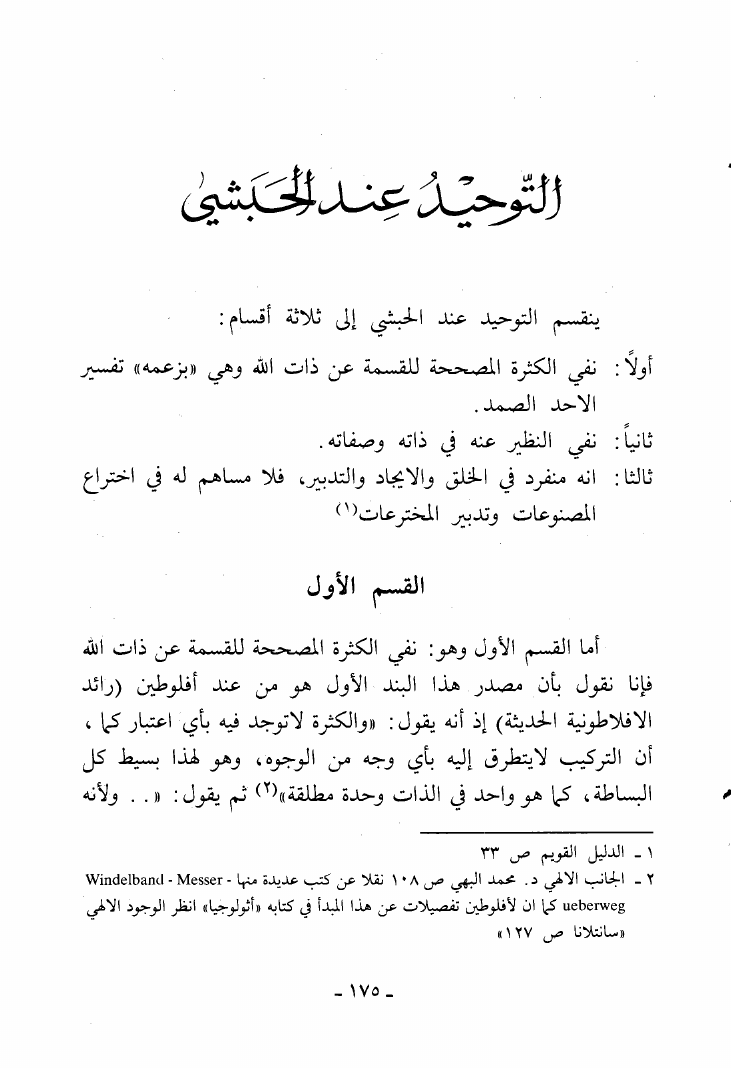 التَّوحيْدُ عِند الحَبَشيّ
ينقسم التوحيد عند الحبشي إلى ثلاثة أقسام:
أولاً: نفي الكثرة المصححة للقسمة عن ذات الله وهي «بزعمه» تفسير
الاحد الصمد.
ثانياً: نفي النظير عنه في ذاته وصفاته.
ثالثا: انه منفرد في الخلق والايجاد والتدبير، فلا مساهم له في اختراع
المصنوعات وتدبير المخترعات(١)
القسم الأول
أما القسم الأول وهو: نفي الكثرة المصححة للقسمة عن ذات الله
فإنا نقول بأن مصدر هذا البند الأول هو من عند أفلوطين (رائد
الافلاطونية الحديثة) إذ أنه يقول: «والكثرة لاتوجد فيه بأي اعتبار كما،
أن التركيب لايتطرق إليه بأي وجه من الوجوه، وهو لهذا بسيط كل
البساطة، كما هو واحد في الذات وحدة مطلقة»(٢) ثم يقول: «.. ولأنه
١ - الدليل القويم ص ٣٣
٢ - الجانب الالهي د. محمد البهي ص ١٠٨ نقلا عن كتب عديدة منها - Windelband - Messer
ueberweg كما ان لأفلوطين تفصيلات عن هذا المبدأ في كتابه «أثولوجيا» انظر الوجود الالهي
«سانتلانا ص ١٢٧»
- ١٧٥ -